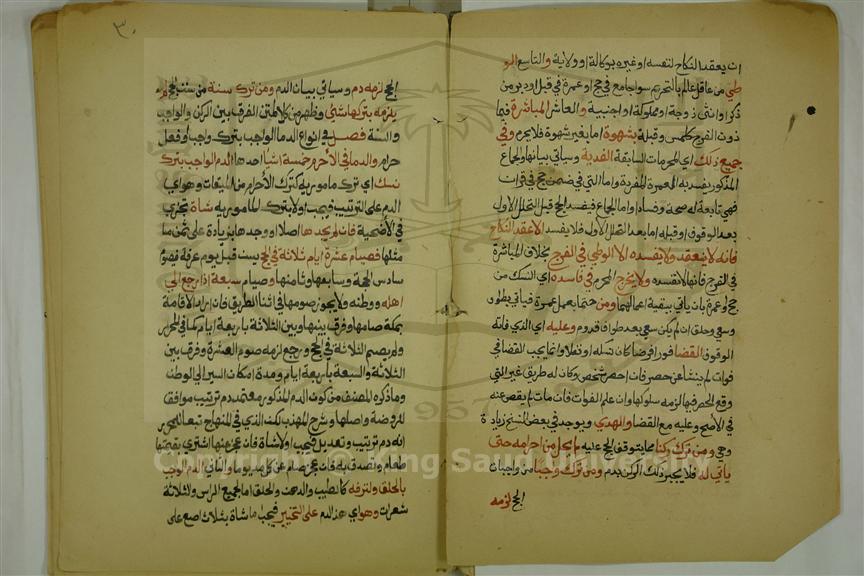 ان يعقد النكاح لنفسه او غيره بوكالة او ولاية والتاسع الو
طي من عاقل عالم بالتحريم سوا جامع في حج او عمرة في قبل او دبر من
ذكر او انثى زوجة او مملوكة او اجنبية والعاشر المباشرة فيما
دون الفرج كلمس وقبلة بشهوة اما بغير شهوة فلا يحرم وفي
جميع ذلك اي المحرمات السابقة الفدية وسياتي بيانها والجماع
المذكور يفسد به العمرة المفردة واما التي في ضمن حج في قران
فهي تابعة له صحة وفسادا واما الجماع فيفسد الحج قبل التحلل الاول
بعد الوقوف او قبله اما بعد التحلل الاول فلا يفسد الا عقد النكاح
فانه لا ينعقد ولا يفسده الا الوطي في الفرج بخلاف المباشرة
في غير الفرج فانها لا تفسده ولا يخرج المحرم منه بالفساد
حج او عمرة بان ياتي ببقية اعمالهما ومن
وسعى وحلق ان لم يكن سعى بعد طواف قدوم وعليه اي الذي فاته
الوقوف القضا فورا فرضا كان نسكه او نفلا وانما يجب القضا في
فوات لم ينشا عن حصر فان احصر شخص وكان له طريق غير التي
وقع الحصر فيها لزمه سلوكها وان علم الفوات فان مات لم يقض عنه
في الاصح وعليه مع القضا والهدي ويوجد في بعض النسخ زيادة
وهي ومن ترك ركنا مما يتوقف الحج عليه لم يحل من احرامه حتى
ياتي به فلا يجبر ذلك الركن بدم ومن ترك واجبا من واجبات
الحج لزمه
٣٠
الحج لزمه دم وسياتي بيان الدم ومن ترك سنة من سنن الحج لم
يلزمه بتركها شي وظهر من كلام المتن الفرق بين الركن والواجب
والسنة فصل في انواع الدما الواجبة بترك واجب او فعل
حرام والدما في الاحرام خمسة اشيا احدها الدم الواجب بترك
نسك اي ترك مامور به كترك الاحرام من الميقات وهو اي
الدم على الترتيب فيجب اولا بترك المامور به شاة تجزي
في الاضحية فان لم يجدها اصلا او وجدها بزيادة على ثمن
مثلها فصيام عشرة ايام ثلاثة في الحج تسن قبل يوم عرفة فيصوم
سادس الحجة وسابعها وثامنها وصيام سبعة اذا رجع الى
اهله ووطنه ولا يجوز صومها في اثنا الطريق فان اراد الاقامة
بمكة صامها وفرق بينها وبين الثلاثة باربعة ايام كما في المحرر
ولو لم يصم الثلاثة في الحج ورجع لزمه صوم العشرة وفرق بين
الثلاثة والسبعة باربعة ايام ومدة امكان السير الى الوطن
وما ذكره المصنف من كون الدم المذكور دم ترتيب موافق
للروضة واصلها وشرح المهذب لكن الذي في المنهاج تبعا للمحرر
انه دم ترتيب وتعديل فيجب اولا شاة فان عجز عنها اشترى بقيمتها
طعاما وتصدق به فان عجز صام عن كل مد يوما والثاني الدم الواجب
بالحلق والترفه كالطيب والدهن والحلق اما لجميع الراس او لثلاثة
شعرات وهو اي هذ الدم على التخيير فيجب اما شاة بثلاث اصع على
Copyright © King Saud University
1957